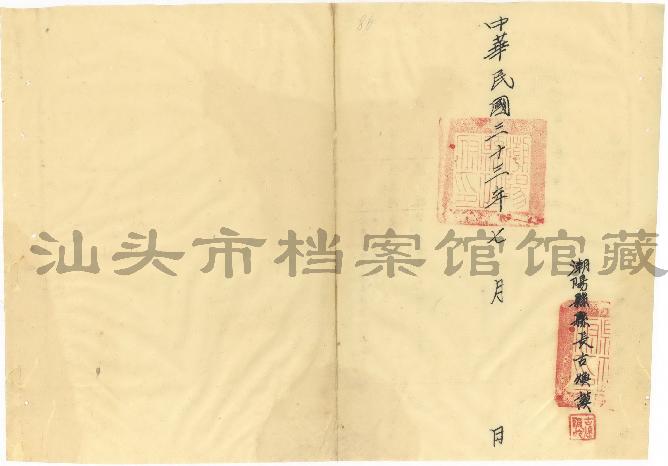 86
中華民國三十三年七月 日
潮陽縣縣長古煥謨
汕头市档案馆馆藏